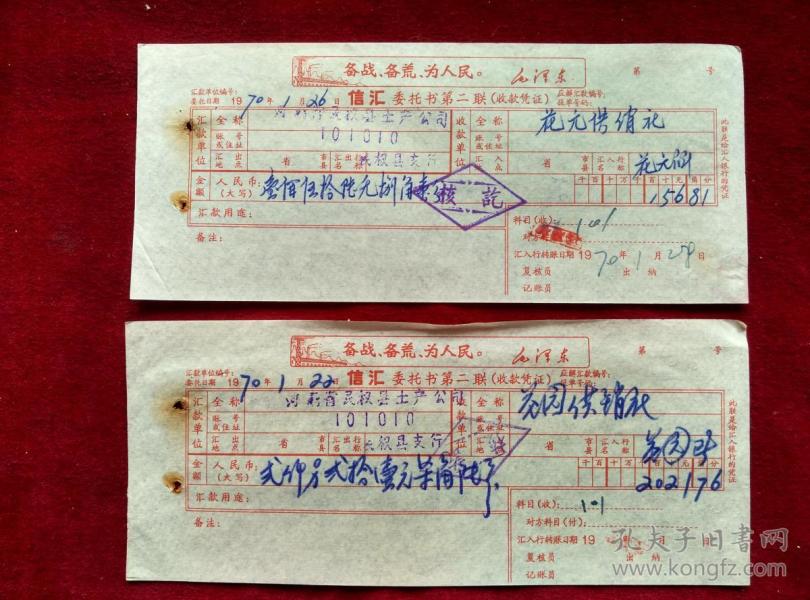 备战、备荒、为人民。 毛泽东
第 号
汇款单位编号：
委托日期 1970年1月26日 信汇 委托书第二联（收款凭证） 应解汇款编号：
报单号码：
汇款单位 全称 河南省民权县土产公司 收款单位 全称 花元供销社
账号或住址 101010 账号或住址
汇出地点 省 市县 汇出行名称 民权县支行 汇入地点 省 市县 汇入行名称 花元
金额 人民币：（大写） 壹佰伍拾陆元捌角壹分 千百十万千百十元角分
15681
核讫
汇款用途：
备注：
科目（收） 101
对方科目
汇入行转账日期 1970年1月29日
复核员 出纳
记账员
此联是给汇入银行的凭证
备战、备荒、为人民。 毛泽东
第 号
汇款单位编号：
委托日期 1970年1月22日 信汇 委托书第二联（收款凭证） 应解汇款编号：
报单号码：
汇款单位 全称 河南省民权县土产公司 收款单位 全称 花园供销社
账号或住址 101010
汇出地点 省 市县 汇出行名称 民权县支行 汇入地点 省 市县 汇入行名称 花园
金额 人民币：（大写） 贰仟另贰拾壹元柒角陆分 千百十万千百十元角分
202176
汇款用途：
备注：
科目（收）： 101
对方科目（付）：
汇入行转账日期 19 年 月 日
复核员 出纳
记账员
此联是给汇入银行的凭证
孔夫子旧书网
www.kongfz.com